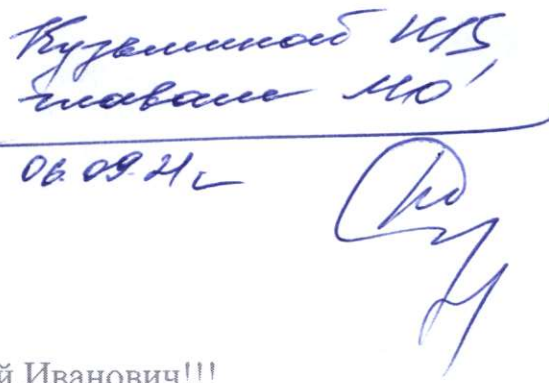 Кузьминой НБ
главам МО
06.09.21г
й Иванович!!!